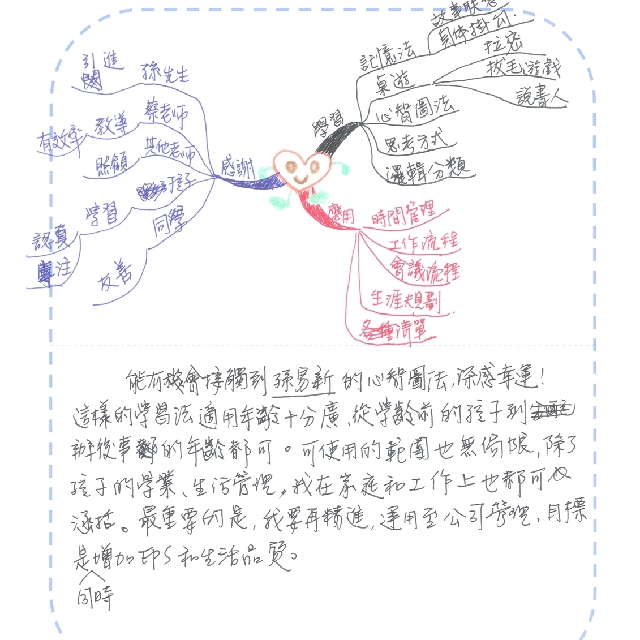 故事聯想
身体掛勾
記憶法
拉密
桌遊
拔毛遊戲
心智圖法
說書人
學習
思考方式
邏輯分類
引進
孫先生
有效率
教導
蔡老師
照顧
其他老師
感謝
孩子
認真
學習
專注
同學
友善
應用
時間管理
工作流程
會議流程
生涯規劃
各種清單
能有機會接觸到孫易新的心智圖法,深感幸運!
這樣的學習法適用年齡十分廣、從學齡前的孩子到
辦後事的年齡都可。可使用的範圍也無侷限,除了
孩子的學業、生活管理,我在家庭和工作上也都可以
涵括。最重要的是,我要再精進,運用至公司管理,目標
是增加EPS和生活品質。
同時